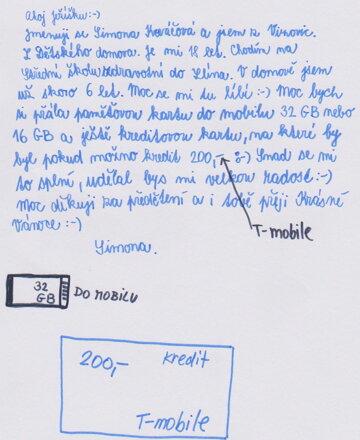 Ahoj Ježíšku:-)
Jmenuji se Simona Kováčová a jsem z Vizovic.
Z Dětského domova. Je mi 18 let. Chodím na
Střední školu zdravotní do Zlína. V domově jsem
už skoro 6 let. Moc se mi tu líbí :-) Moc bych
si přála paměťovou kartu do mobilu 32 GB nebo
16 GB a ještě kreditovou kartu, na které by
byl pokud možno kredit 200,- :-) Snad se mi
to splní, udělal bys mi velkou radost :-)
Moc děkuji za předčtení a i tobě přeji Krásné
Vánoce :-)
T-mobile
Simona.
32 GB
DO MOBILU
200,- kredit
T-mobile